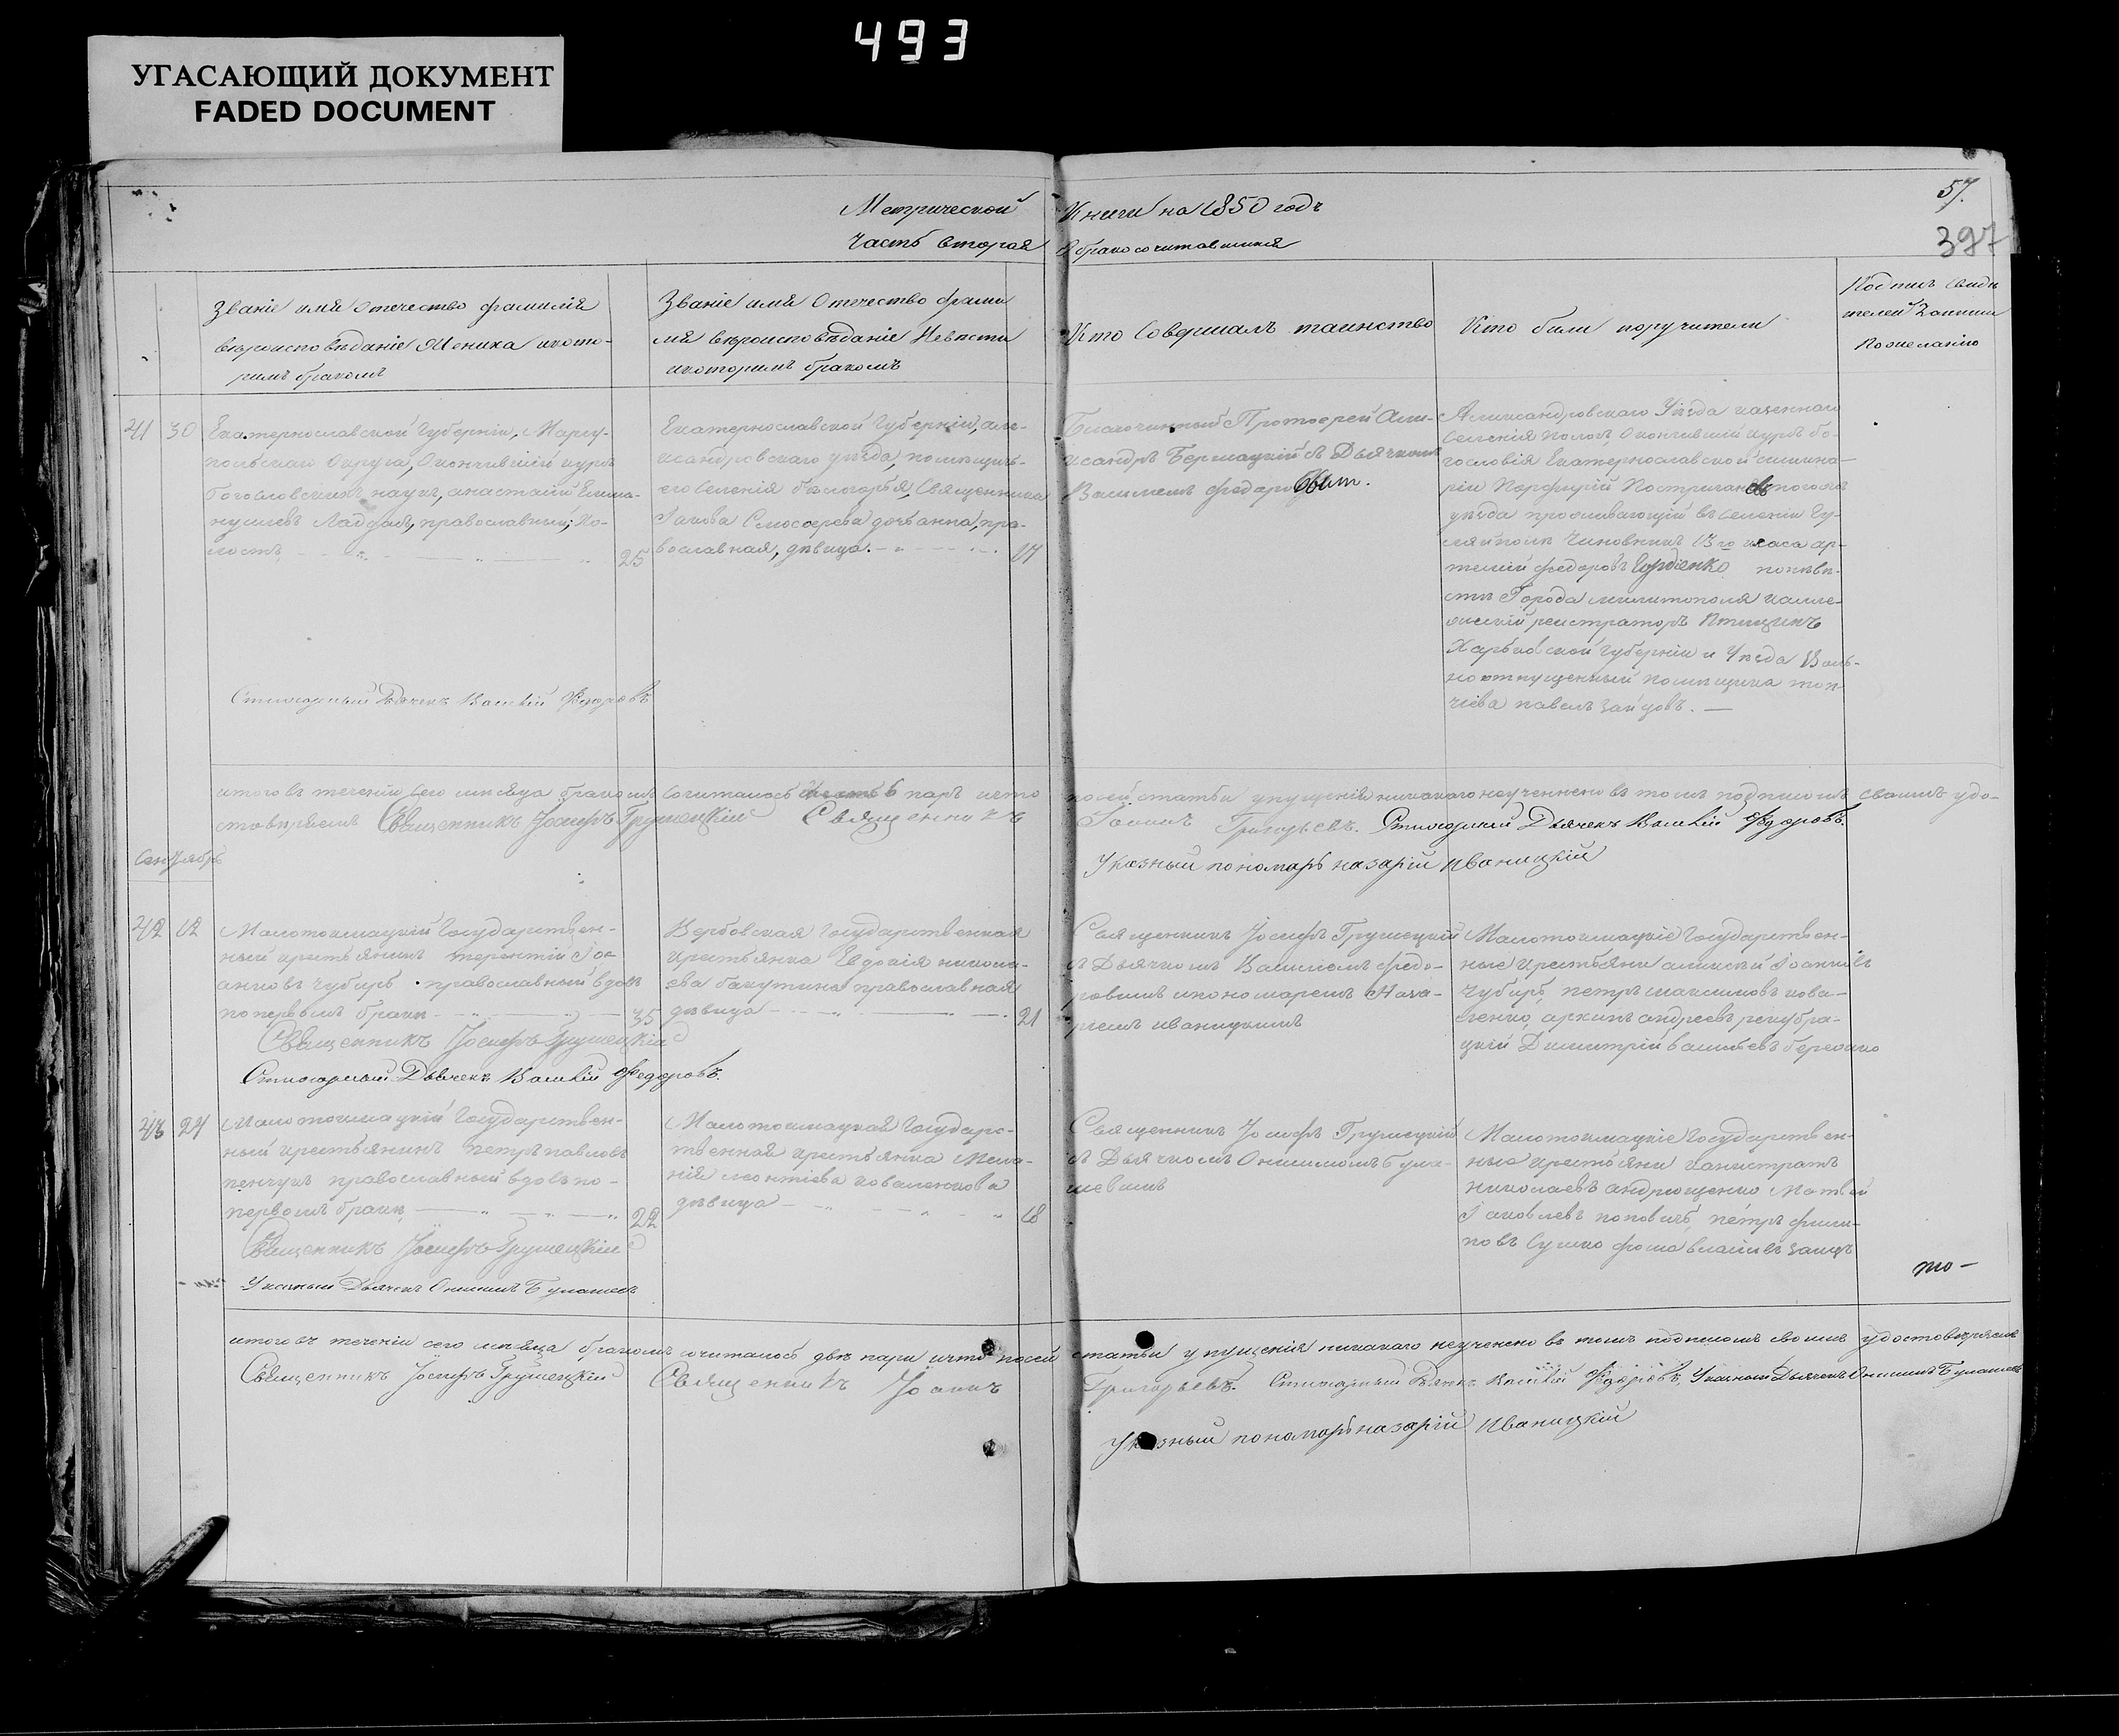 493
УГАСАЮЩИЙ ДОКУМЕНТ
FADED DOCUMENT
57.
397
Метрической Книги на 1850 годъ
Часть вторая О бракосочитавшихся
Званіе имя Отечество фамилія
вѣроисповѣданіе Жениха и кото-
римъ бракомъ
Званіе имя Отечество фами
лія вѣроисповѣданіе Невѣсти
и которимъ бракомъ
Кто Совершалъ таинство
Кто били поручители
Подпись Свиди
телей Записи
по желанію
41 30
Екатеринославской Губерніи, Маріу-
польскаго Округа, Окончившій курсъ
Богословскихъ наукъ, анастасій Емма-
нуиловъ православный; Хо-
лостъ 25
Екатеринославской Губерніи, але-
ксандровскаго уѣзда, помѣщичь-
его селенія бѣлогорья, Священника
Іакова дочь анна, пра-
вославная, дѣвица. 17
Благочинный Протоерей Але-
ксандръ Бермацкій съ Дьячкомъ
Василіемъ федоровым.
Александровскаго Уѣзда казеннаго
селенія Окончившій курсъ бо-
гословія Екатеринославской семина-
ріи Порфирій
уѣзда проживающій въ селеніи Гу-
ляйполѣ Чиновникъ 13го класа ар-
темій федоровъ Гордіенко по невѣ-
стѣ Города мелитополя колле-
жскій реистраторъ Птицинъ
Харьковской губерніи и Уѣзда Воль-
ноотпущенный помѣщика
павелъ зайцовъ.
Стихарный Дьячекъ Василій Федоровъ
итого въ теченіи сего мѣсяца бракомъ сочиталось 6 паръ и что по сей статьи упущенія никакого неучинено въ томъ подписомъ своимъ удо-
стовѣряемъ Священникъ Іосифъ Грушецкій Священникъ Іоаннъ Григорьевъ. Стихарный Дьячекъ Василій Федоровъ.
Указный пономарь назарій Иваницкій
Сентябрь
42 12
Малотокмацкій Государствен-
ный крестьянинъ терентій Іо-
анновъ чубирь православный вдовъ
по первомъ браки 35
Вербовская Государственная
крестьянка Евдокія никола-
ева бакутина православная
дѣвица 21
Священникъ Іосифъ Грушецкій
съ Дьячкомъ Василіемъ федо-
ровимъ и пономаремъ Наза-
ріемъ иваницкимъ
Малотокмацкіе Государствен-
ные крестьяни алексѣй Іоанновъ
Чубирь, петръ максимовъ кова-
ленко, андреевъ
Димитрій василіевъ бережко
Священникъ Іосифъ Грушецкій
Стихарный Дьячекъ Василій Федоровъ.
43 24
Малотокмацкій Государствен-
ный крестьянинъ петръ павловъ
пенчукъ православный вдовъ по
первомъ браки 22
Малотокмацкая Государс-
твенная крестьянка Мела-
нія леонтіева коваленкова
дѣвица 18
Священникъ Іосифъ Грушецкій
съ Дьячкомъ Онисимомъ Була-
шевимъ
Малотокмацкіе Государствен-
ные крестьяни калистратъ
николаевъ андрющенко Матвѣй
Іаковлевъ поповичь, петръ фили-
повъ Сушко фома власіевъ заецъ
Священникъ Іосифъ Грушецкій
Указный Дьячекъ Онисимъ Булашевъ
то-
итого въ теченіи сего мѣсяца бракомъ сочиталось двѣ пари и что по сей статьи упущенія никакого неучинено въ томъ подписомъ своимъ удостовѣряемъ
Священникъ Іосифъ Грушецкій Священникъ Іоаннъ Григорьевъ. Стихарный Дьячекъ Василій Федоровъ, Указный Дьячекъ Онисимъ Булашевъ
Указный пономарь назарій Иваницкій